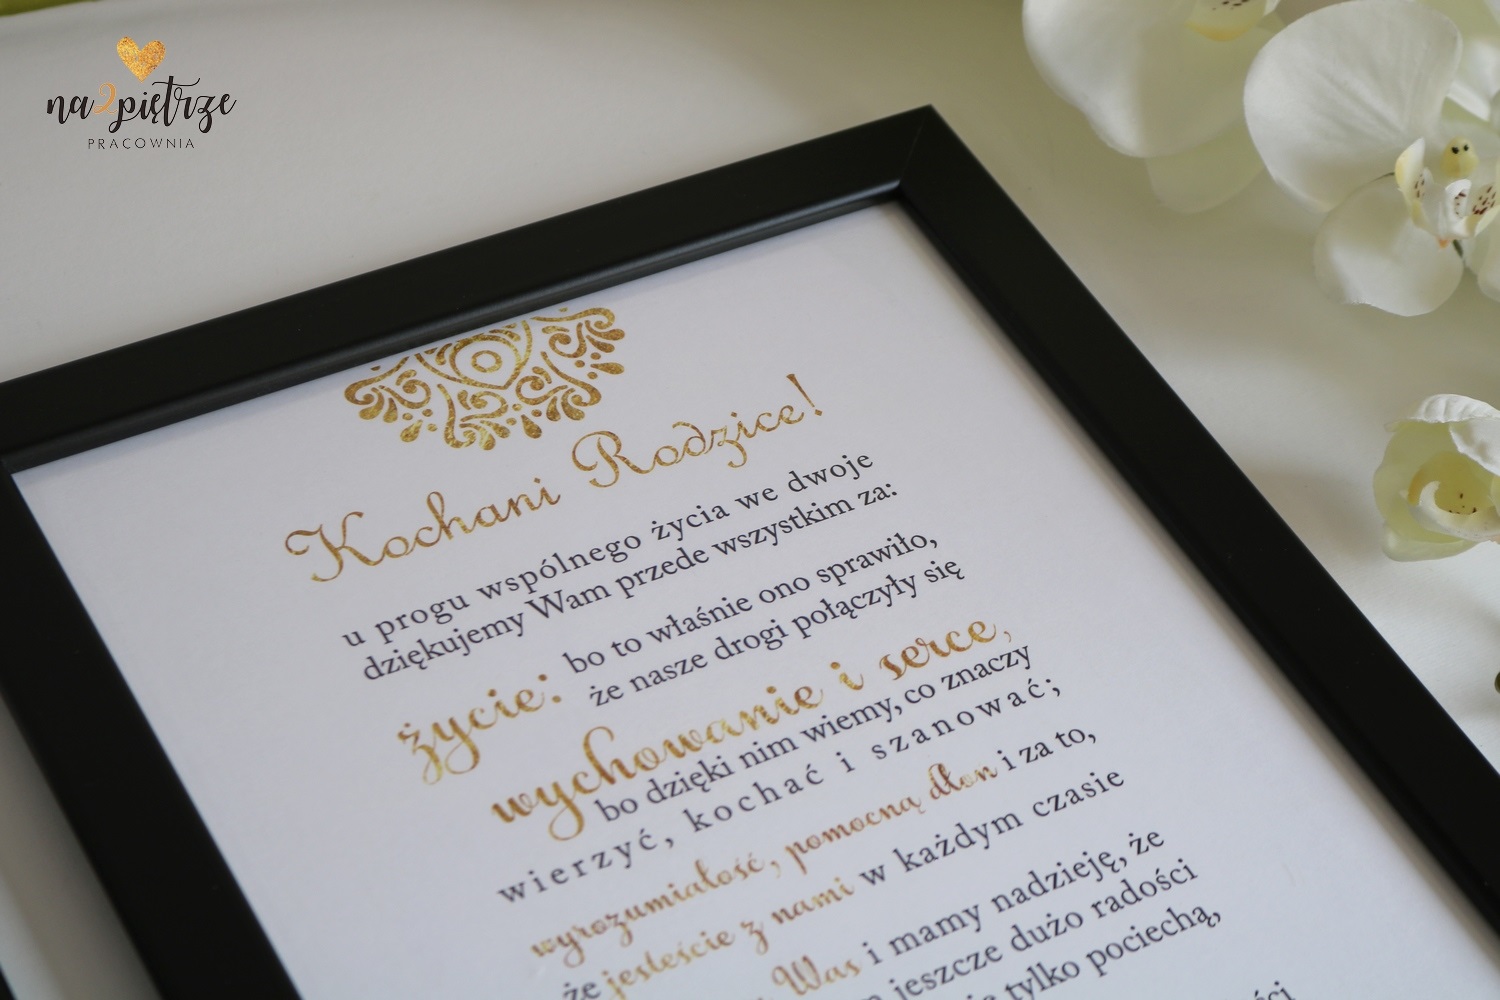 na2piętrze
PRACOWNIA
Kochani Rodzice!
u progu wspólnego życia we dwoje
dziękujemy Wam przede wszystkim za:
życie: bo to właśnie ono sprawiło,
że nasze drogi połączyły się
wychowanie i serce,
bo dzięki nim wiemy, co znaczy
wierzyć, kochać i szanować;
wyrozumiałość, pomocną dłoń i za to,
że jesteście z nami w każdym czasie
Was i mamy nadzieję, że
jeszcze dużo radości
tylko pociechą,